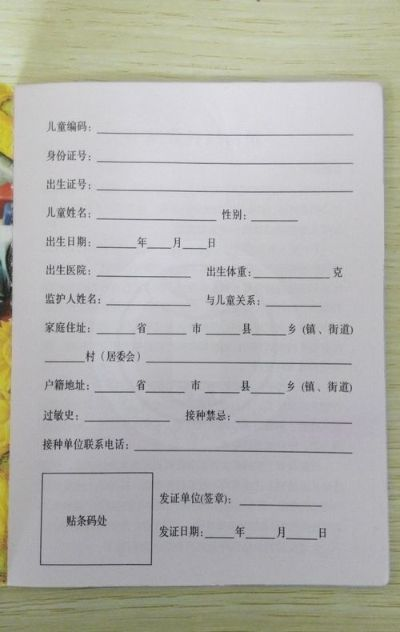 儿童编码：
身份证号：
出生证号：
儿童姓名：________ 性别：________
出生日期：________年____月____日
出生医院：________ 出生体重：________克
监护人姓名：________ 与儿童关系：________
家庭住址：______省______市______县______乡（镇、街道）
______村（居委会）________
户籍地址：______省______市______县______乡（镇、街道）
过敏史：________ 接种禁忌：________
接种单位联系电话：________
贴条码处
发证单位(签章)：________
发证日期：____年____月____日